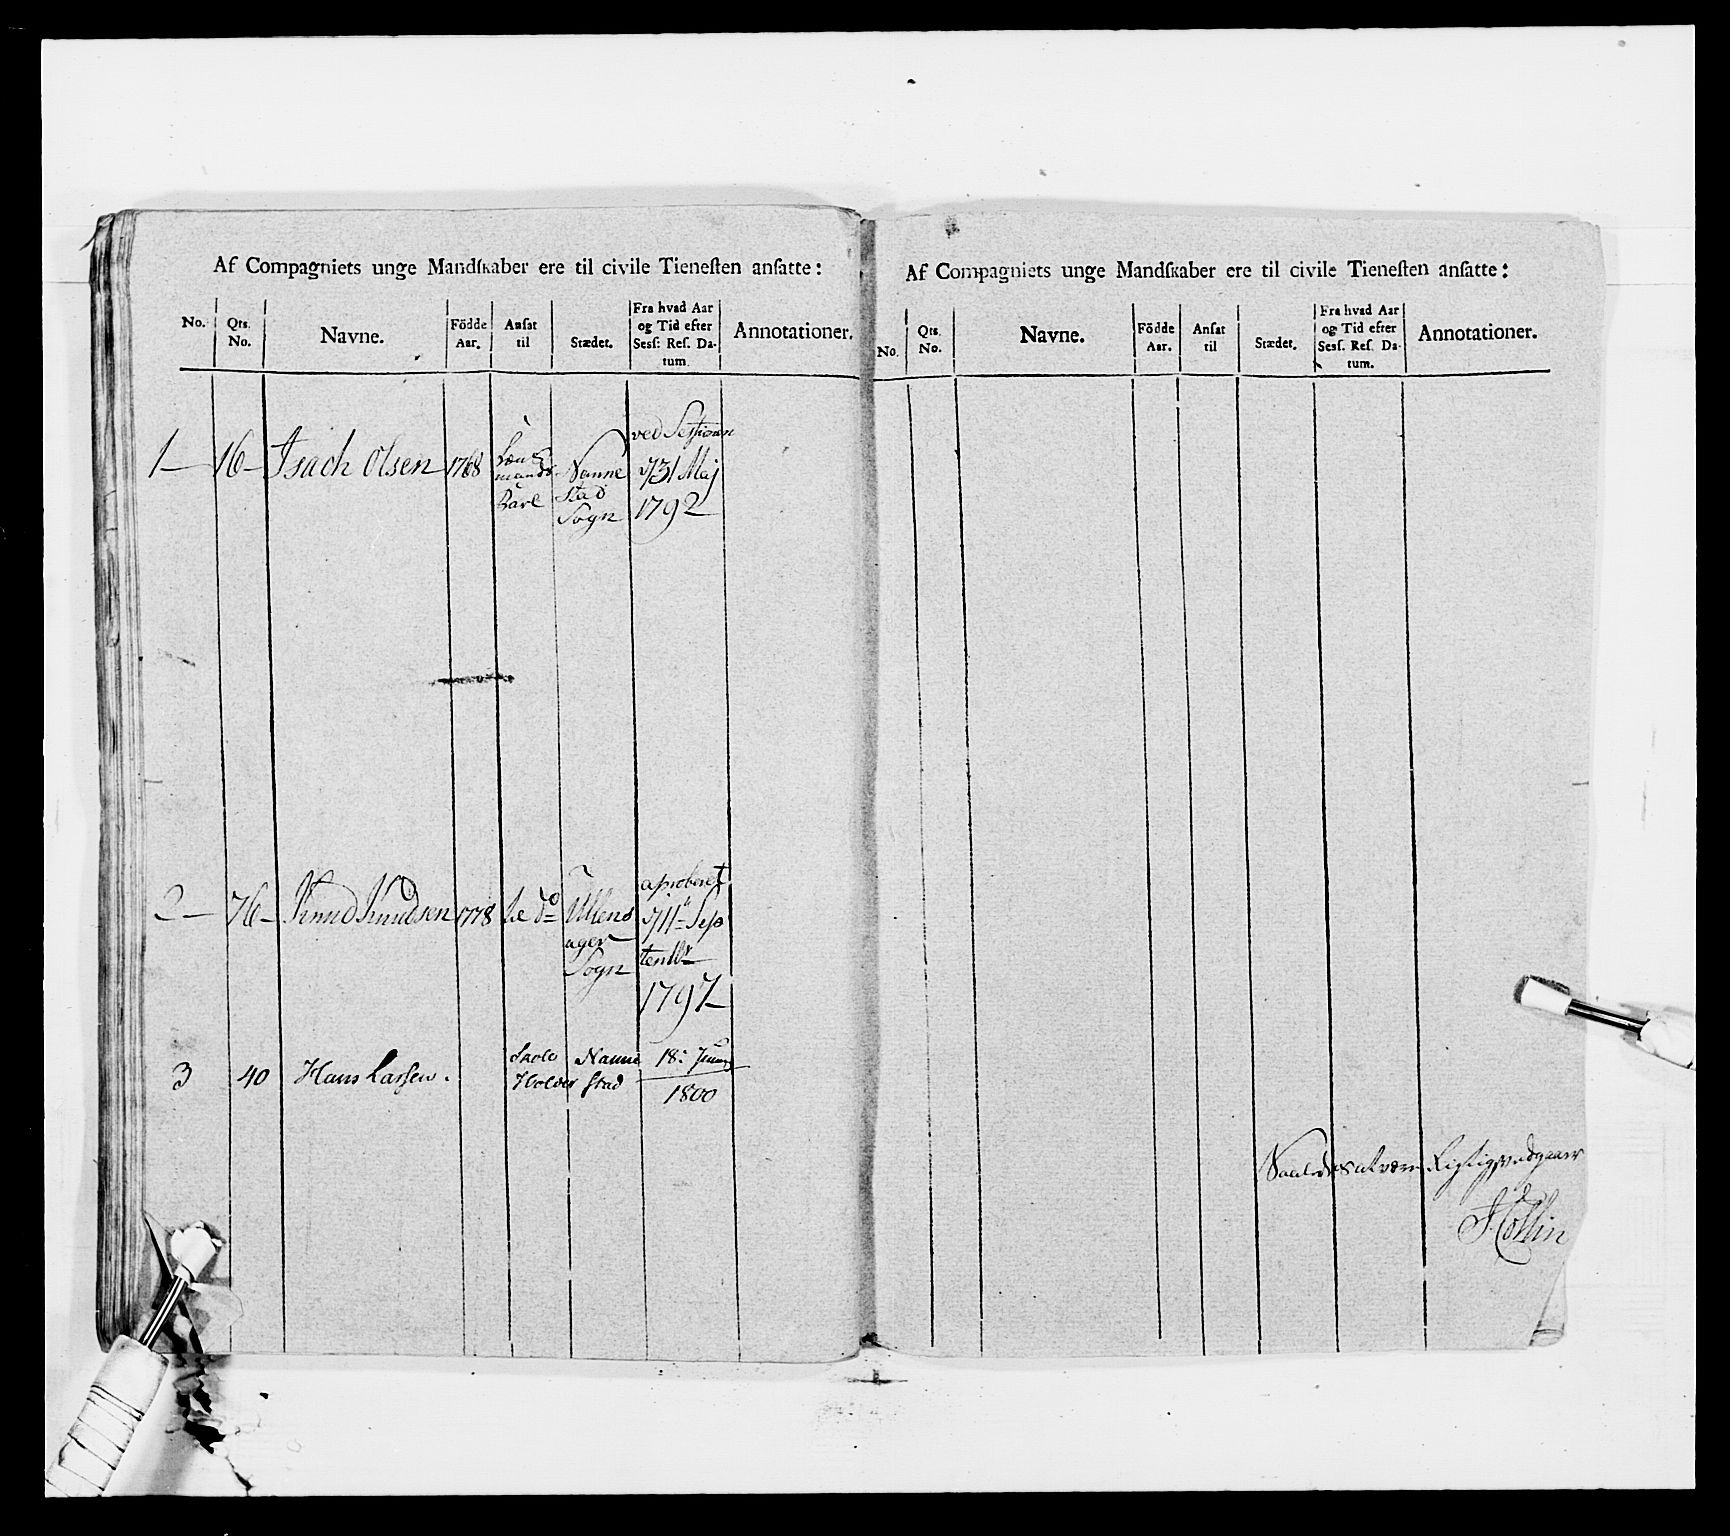 Af Compagniets unge Mandskaber ere til civile Tienesten ansatte:
No. Qts. No. Navne. Födde Aar. Ansat til Stædet. Fra hvad Aar og Tid efter Sess: Res. Datum. Annotationer.
1 — 16 — Isach Olsen 1768 Lænsmands Karl Nannestad Sogn ved Sessionen d/31 Maj 1792
2 — 76 — Knud Knudsen 1778 Ullensager Sogn aproberet d/11te September 1797
3 40 Hans Larsen. Skole Holder Nannestad 18: Juny 1800
Af Compagniets unge Mandskaber ere til civile Tienesten ansatte:
No. Qts. No. Navne. Födde Aar. Ansat til Stædet. Fra hvad Aar og Tid efter Sess. Res. Datum. Annotationer.
Saaledes at være Rigtig vedgaaer
Collin